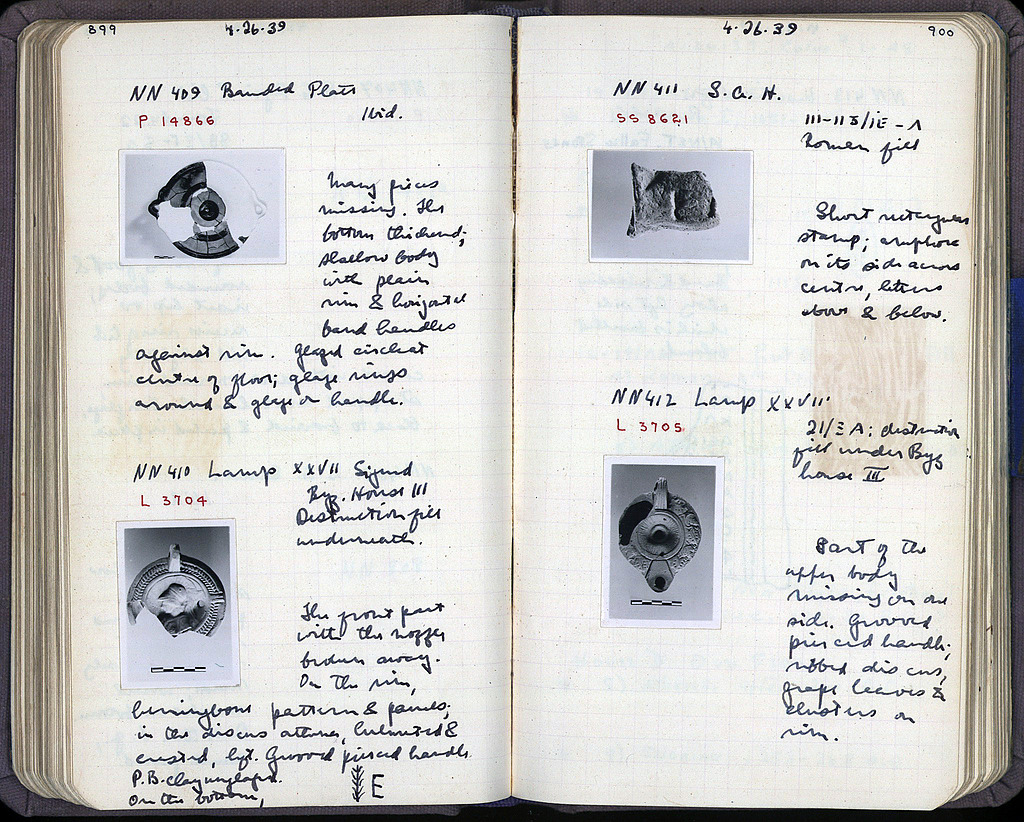 899
4·26·39
NN 409 Banded Plate
Ibid.
P 14866
Many pieces
missing. The
bottom thickened;
shallow body
with plain
rim & horizontal
band handles
against rim. Glazed circle at
centre of floor; glaze rings
around & glaze on handle.
NN 410 Lamp XXVII Signed
Byz. House III
L 3704
Destruction fill
underneath.
The front part
with the nozzle
broken away.
On the rim,
herringbone pattern & panels;
in the discus Athena, helmeted &
crested, left. Grooved pierced handle.
P.B. clay unglazed.
On the bottom, E
4·26·39
900
NN 411 S.A.H.
SS 8621
III-113/IE - A
Roman fill
Short rectangular
stamp; amphora
on its side across
centre, letters
above & below.
NN 412 Lamp XXVIII
L 3705
21/Ξ A; destruction
fill under Byz
house III
Part of the
upper body
missing on one
side. Grooved
pierced handle;
ribbed discus,
grape leaves &
clusters on
rim.